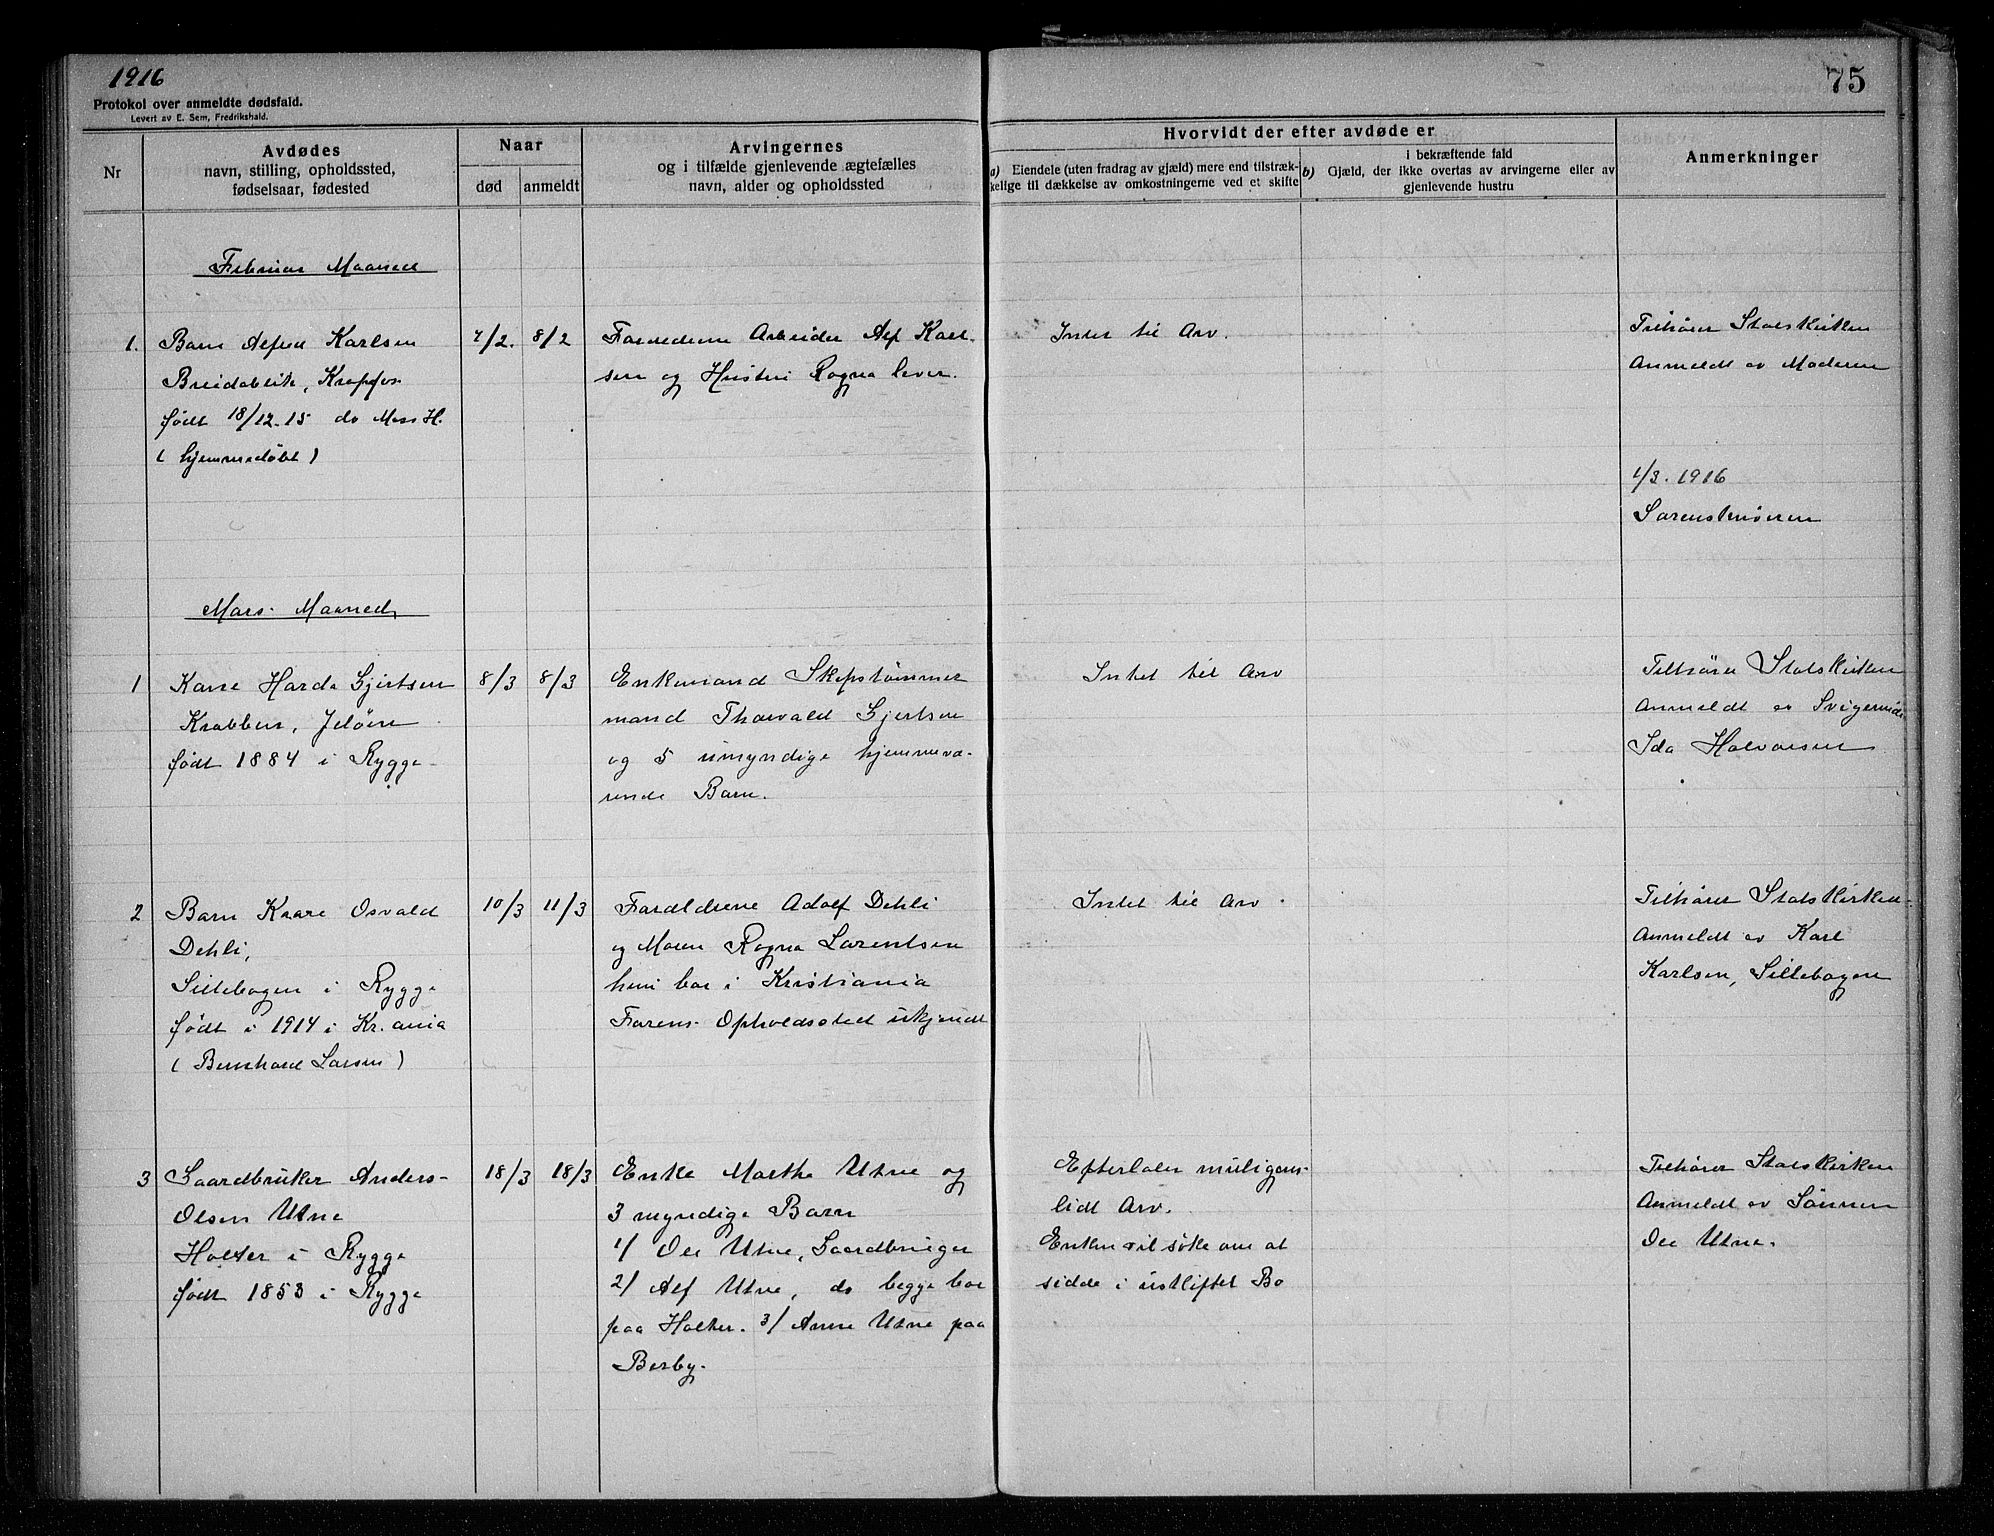 1916
75
Protokol over anmeldte dødsfald.
Levert av E. Sem, Fredrikshald.
Nr
Avdødes
navn, stilling, opholdssted,
fødselsaar, fødested
Naar
død
anmeldt
Arvingernes
og i tilfælde gjenlevende ægtefælles
navn, alder og opholdssted
Hvorvidt der efter avdøde er
a) Eiendele (uten fradrag av gjæld) mere end tilstræk-
kelige til dækkelse av omkostningerne ved et skifte
I bekræftende fald
b) Gjæld, der ikke overtas av arvingerne eller av
gjenlevende hustru
Anmerkninger
Februar Maaned
1.
Barn Alfred Karlsen
Breidablik, Krapfos
født 18/12.15 do Moss H.
(hjemmedøbt)
7/2.
8/2
Forældrene Arbeider Alf Karl-
sen og Hustru Ragna lever.
Intet til Arv.
Tilhører Statskirken
Anmeldt av Moderen
1/3. 1916
Sorenskriveren
Mars Maaned
1
Kone Harda Gjertsen
Krabben, Jeløen
født 1884 i Rygge
8/3
8/3
Enkemand Skipstømmer
mand Thorvald Gjertsen
og 5 umyndige hjemmevæ-
rende Barn.
Intet til Arv
Tilhører Statskirken
Anmeldt av Svigerinde
Ida Halvorsen
2
Barn Kaare Osvald
Dehli,
Sillebogen i Rygge
født i 1914 i Kr.ania
(Bernhard Larsen)
10/3
11/3
Forældrene Adolf Dehli
og Moren Ragna Lorentsen
hun bor i Kristiania
Farens Opholdssted ukjendt
Intet til Arv.
Tilhører Statskirken
Anmeldt av Karl
Karlsen, Sillebogen
3
Gaardbruker Anders
Olsen Utne
Holter i Rygge
født 1853 i Rygge
18/3
18/3
Enke Marthe Utne og
3 myndige Barn
1/ Ole Utne, Gaardbruger
2/ Alf Utne, do begge bor
paa Holter. 3/ Anne Utne paa
Berby.
Efterlater muligens
lidt Arv.
Enken vil søke om at
sidde i uskiftet Bo
Tilhører Statskirken
Anmeldt av Sønnen
Ole Utne.